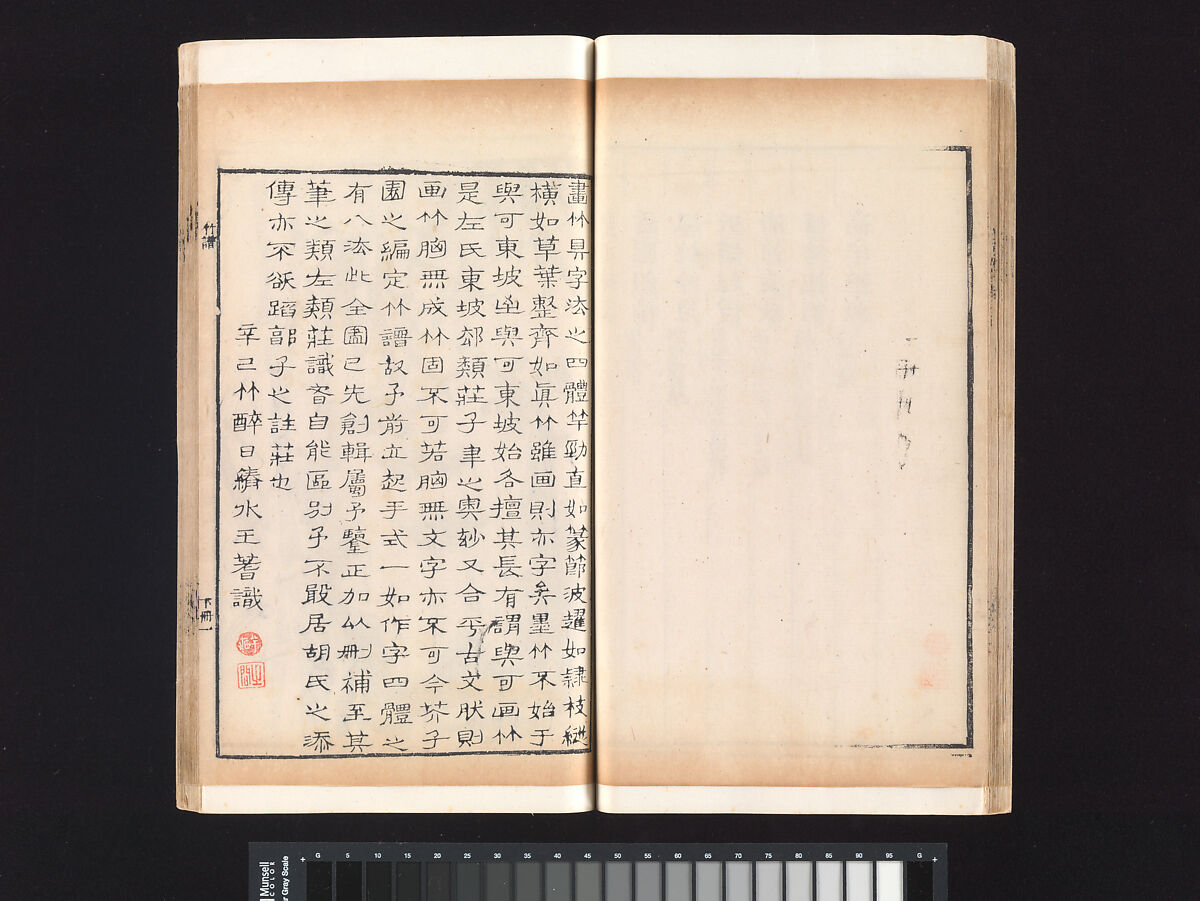 畫竹具字法之四體竿勁直如篆節波趯如隸枝縱
橫如草葉整齊如眞竹雖画則亦字矣墨竹不始于
與可東坡迨與可東坡始各擅其長有謂與可画竹
是左氏東坡却類莊子聿之奧玅又合乎古文肰則
画竹胸無成竹固不可若胸無文字亦不可今芥子
園之編定竹譜故予前立起手式一如作字四體之
有八法此全圖已先創輯屬予鑒正加以刪補至其
筆之類左類莊識者自能區別予不敢居胡氏之添
傳亦不欲蹈郭子之註莊也
辛巳竹醉日繡水王蓍識
竹譜
下冊一
Munsell
COLOR
r Gray Scale
G 5 10 15 20 25 30 35 40 45 50 55 60 65 70 75 80 85 90 95 G